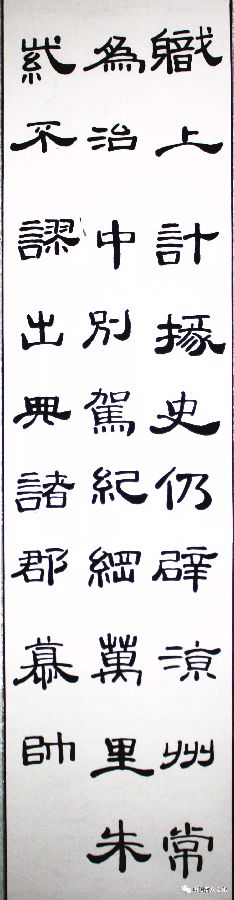 職上計掾史仍辟涼州常
為治中別駕紀綱萬里朱
紫不謬出典諸郡彈